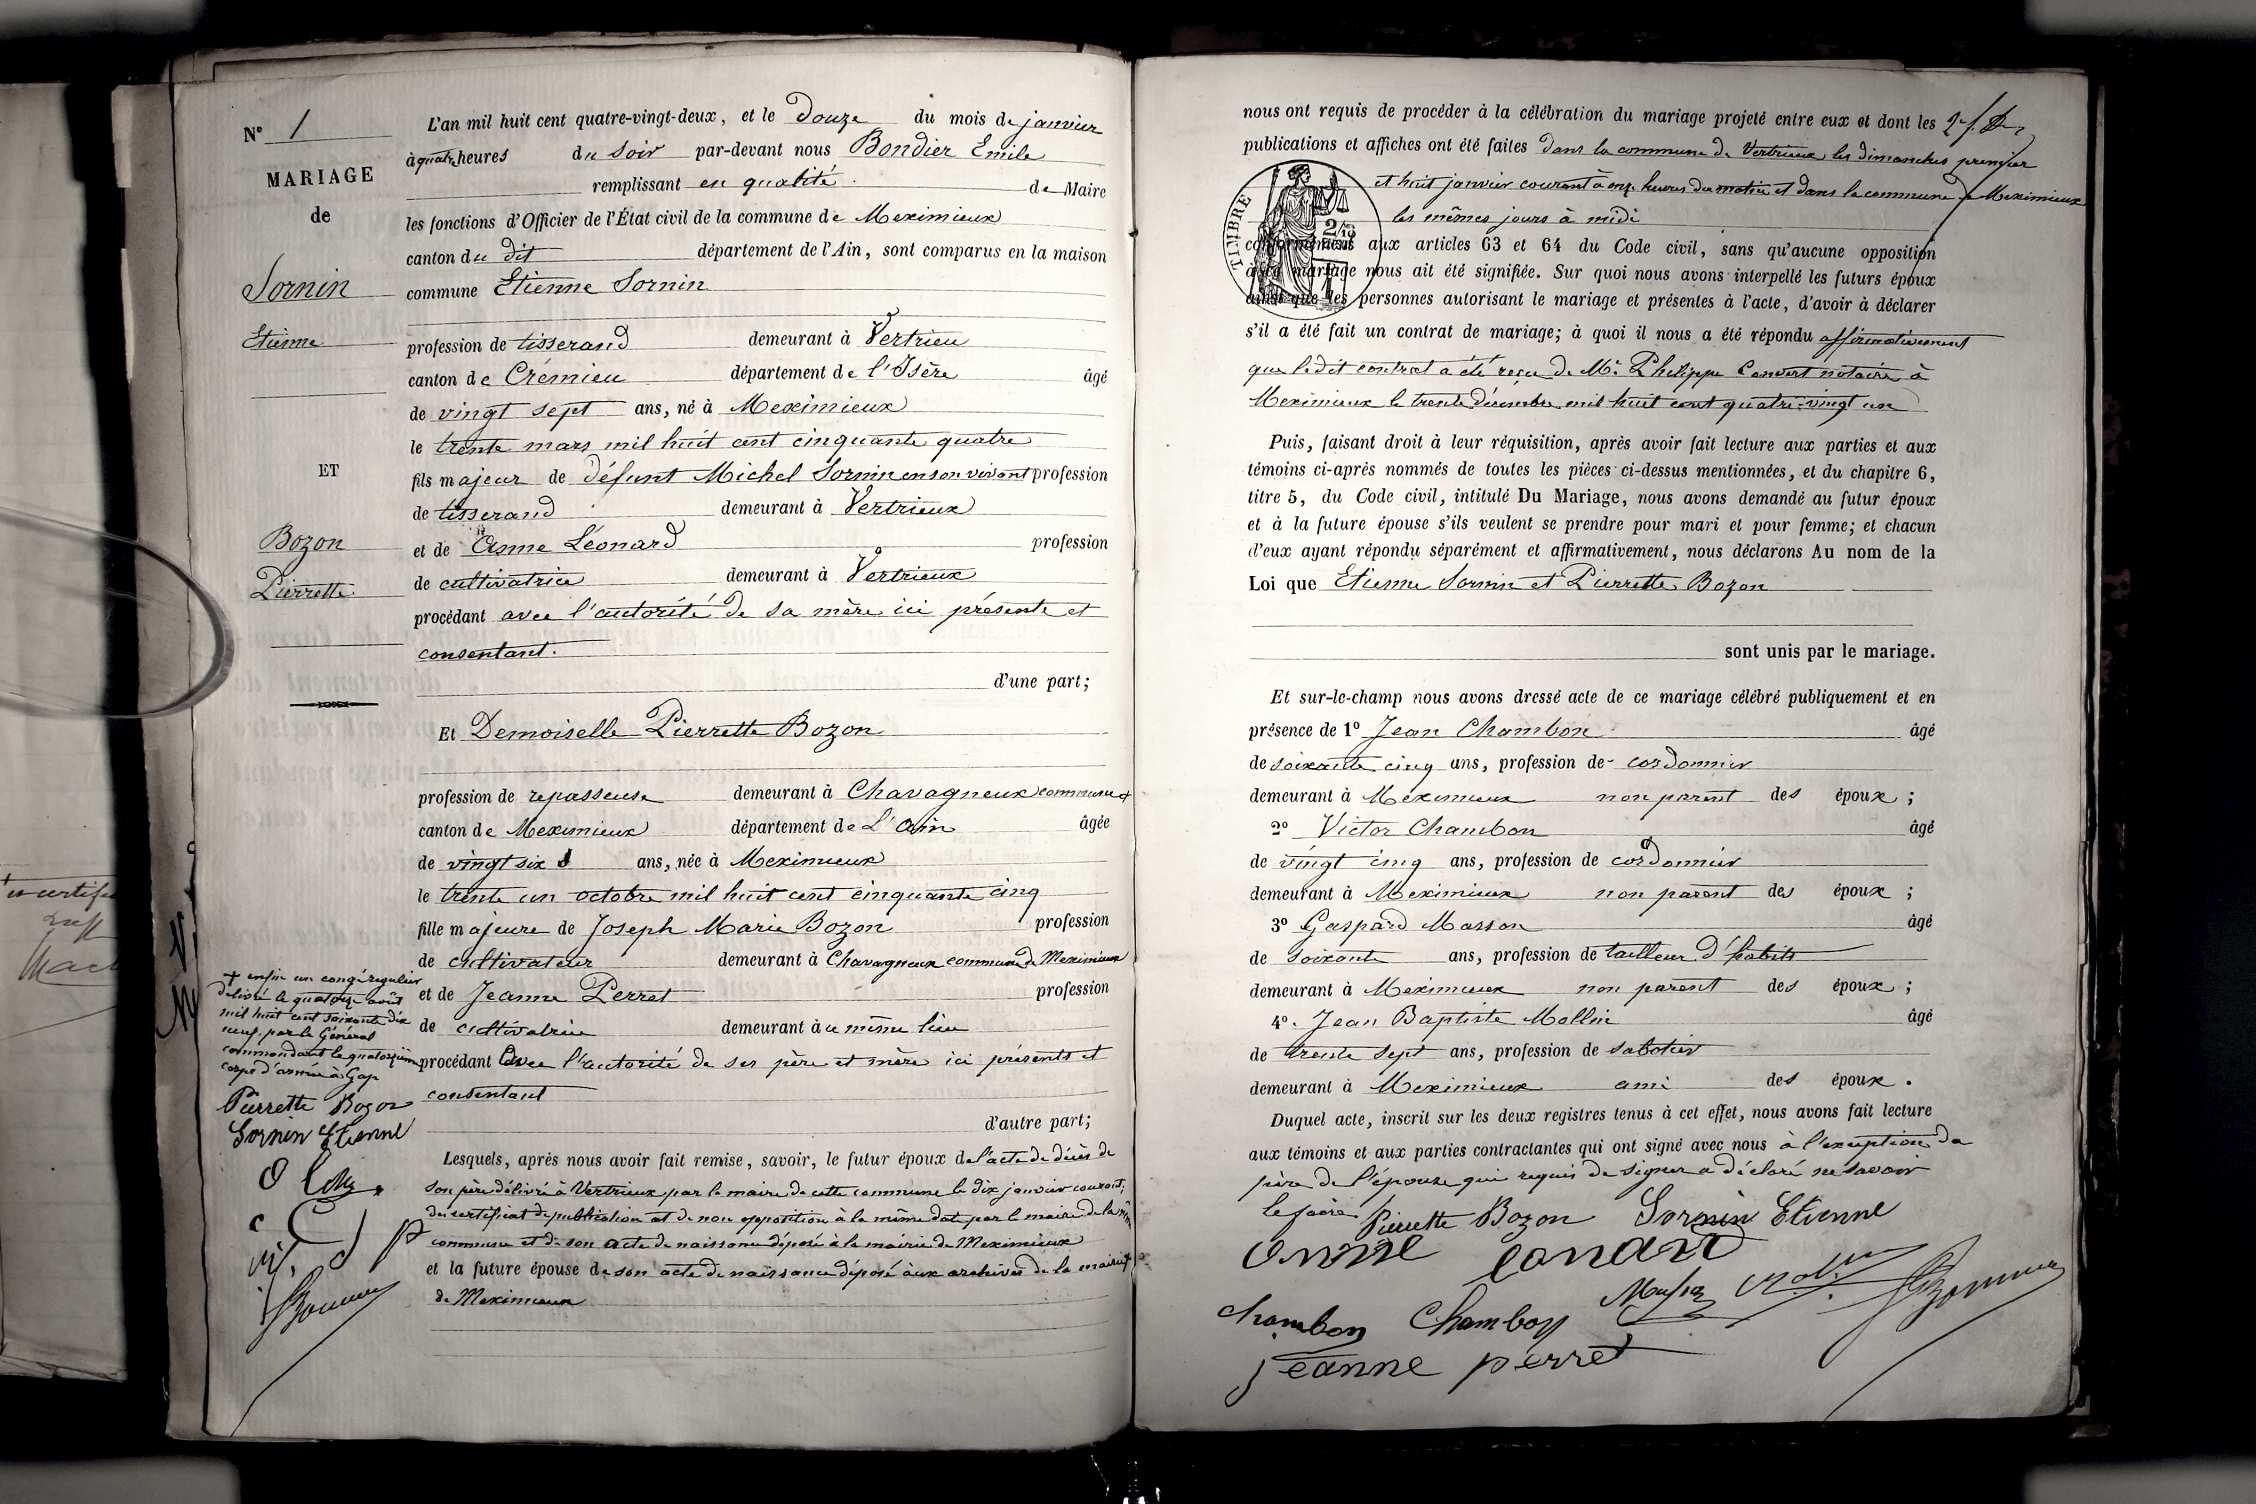 N° 1
MARIAGE
de
Sornin
Etienne
ET
Bozon
Pierrette
L'an mil huit cent quatre-vingt-deux, et le Douze du mois de janvier
à quatre heures du soir par-devant nous Bondier Emile
remplissant en qualité de Maire
les fonctions d'Officier de l'État civil de la commune de Meximieux
canton du dit département de l'Ain, sont comparus en la maison
commune Etienne Sornin
profession de tisserand demeurant à Vertrieu
canton de Crémieu département de l'Isère âgé
de vingt sept ans, né à Meximieux
le trente mars mil huit cent cinquante quatre
fils majeur de défunt Michel Sornin en son vivant profession
de tisserand demeurant à Vertrieux
et de Anne Léonard profession
de cultivatrice demeurant à Vertrieux
procédant avec l'autorité de sa mère ici présente et
consentant.
d'une part;
Et Demoiselle Pierrette Bozon
profession de repasseuse demeurant à Chavagneux commune +
canton de Meximieux département de L'ain âgée
de vingt six ans, née à Meximieux
le trente un octobre mil huit cent cinquante cinq
fille majeure de Joseph Marie Bozon profession
de cultivateur demeurant à Chavagneux commune de Meximieux
et de Jeanne Perret profession
de cultivatrice demeurant au même lieu
procédant avec l'autorité de ses père et mère ici présents et
consentant
d'autre part;
Lesquels, après nous avoir fait remise, savoir, le futur époux de l'acte de décès de
son père délivré à Vertrieux par le maire de cette commune le dix janvier courant;
du certificat de publication et de non opposition à la même date par le maire de la même
commune et de son acte de naissance déposé à la mairie de Meximieux
et la future épouse de son acte de naissance déposé aux archives de la mairie
de Meximieux
+ enfin un congé régulier
délivré le quatorze août
mil huit cent soixante dix
neuf par le Général
commandant le quatorzième
corps d'armée à Gap
Pierrette Bozon
Sornin Etienne
nous ont requis de procéder à la célébration du mariage projeté entre eux et dont les
publications et affiches ont été faites dans la commune de Vertrieux, les dimanches premier
et huit janvier courant à onze heures du matin et dans la commune de Meximieux
les mêmes jours à midi
TIMBRE
conformément aux articles 63 et 64 du Code civil, sans qu'aucune opposition
à ce mariage nous ait été signifiée. Sur quoi nous avons interpellé les futurs époux
ainsi que les personnes autorisant le mariage et présentes à l'acte, d'avoir à déclarer
s'il a été fait un contrat de mariage; à quoi il nous a été répondu affirmativement
que ledit contrat a été reçu de Me Philippe Convert notaire à
Meximieux le trente décembre mil huit cent quatre-vingt un
Puis, faisant droit à leur réquisition, après avoir fait lecture aux parties et aux
témoins ci-après nommés de toutes les pièces ci-dessus mentionnées, et du chapitre 6,
titre 5, du Code civil, intitulé Du Mariage, nous avons demandé au futur époux
et à la future épouse s'ils veulent se prendre pour mari et pour femme; et chacun
d'eux ayant répondu séparément et affirmativement, nous déclarons Au nom de la
Loi que Etienne Sornin et Pierrette Bozon
sont unis par le mariage.
Et sur-le-champ nous avons dressé acte de ce mariage célébré publiquement et en
présence de 1° Jean Chambon âgé
de soixante cinq ans, profession de cordonnier
demeurant à Meximieux non parent des époux ;
2° Victor Chambon âgé
de vingt cinq ans, profession de cordonnier
demeurant à Meximieux non parent des époux ;
3° Gaspard Masson âgé
de soixante ans, profession de tailleur d'habits
demeurant à Meximieux non parent des époux ;
4°. Jean Baptiste Mollin âgé
de trente sept ans, profession de sabotier
demeurant à Meximieux ami des époux.
Duquel acte, inscrit sur les deux registres tenus à cet effet, nous avons fait lecture
aux témoins et aux parties contractantes qui ont signé avec nous à l'exception du
père de l'épouse qui requis de signer a déclaré ne savoir
le faire. Pierrette Bozon Sornin Etienne
Chambon Chambon
jeanne perret